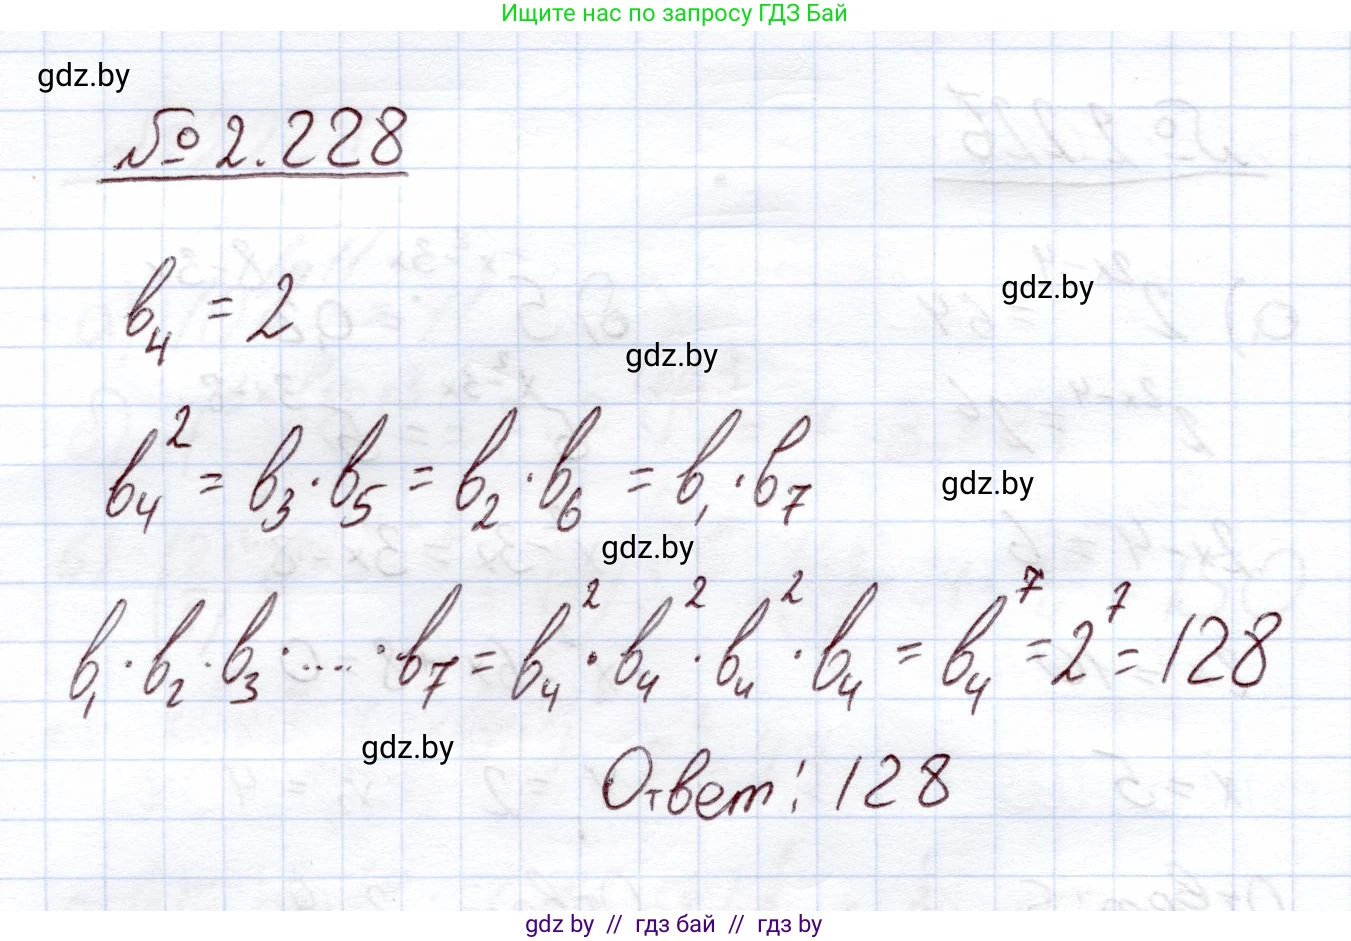 Ищите нас по запросу ГДЗ Бай
gdz.by
№ 2.228
gdz.by
b₄ = 2
gdz.by
b₄² = b₃ · b₅ = b₂ · b₆ = b₁ · b₇
gdz.by
gdz.by
b₁ · b₂ · b₃ · .... · b₇ = b₄² · b₄² · b₄² · b₄ = b₄⁷ = 2⁷ = 128
gdz.by
Ответ: 128
gdz.by // гдз бай // гдз by